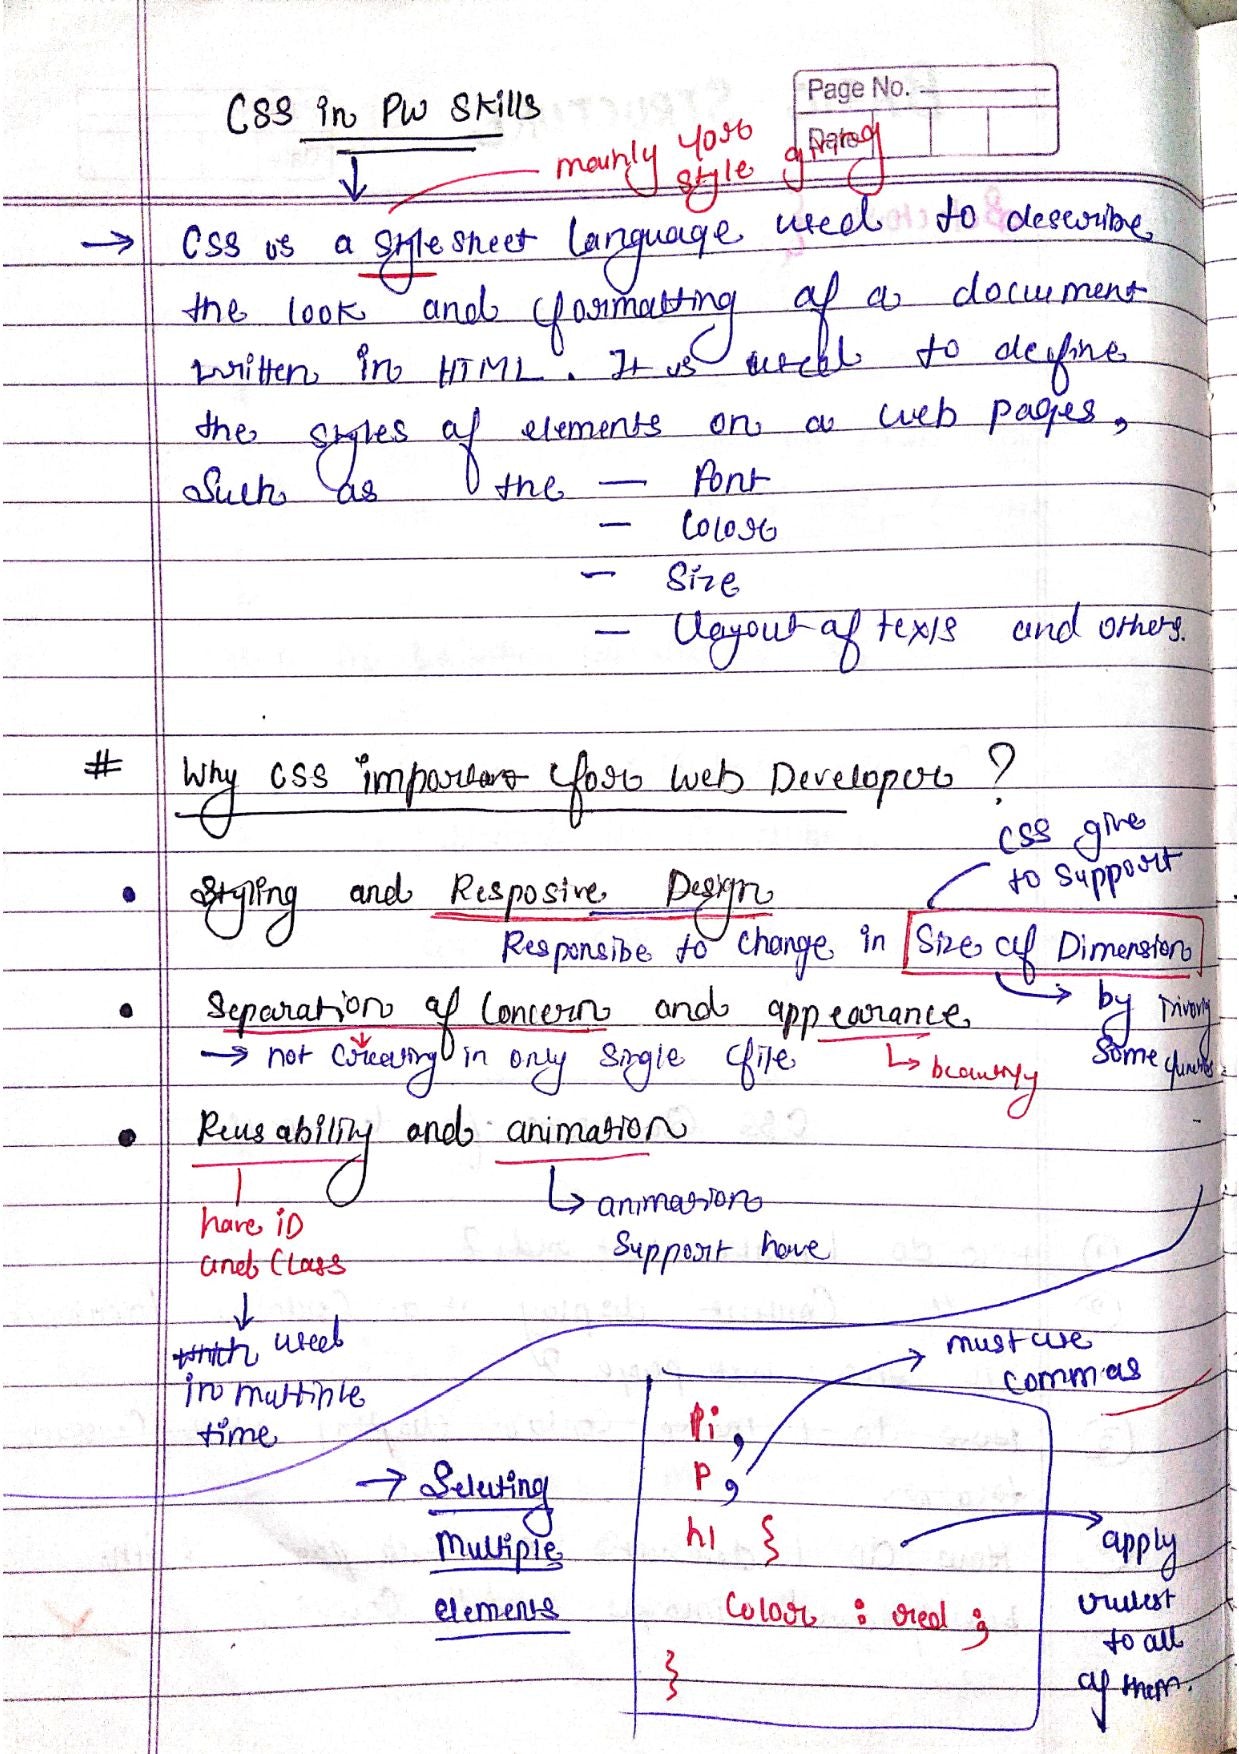 Page No.
Date
CSS in PW Skills
mainly for
style giving
→ CSS is a stylesheet language used to describe
the look and formatting of a document
written in HTML. It is used to define
the styles of elements on a web pages,
Such as the — Font
— Color
— Size
— Layout of texts and others.
# Why CSS important for web Developer ?
CSS give
to support
• Styling and Resposive Design
Responsibe to change in Size of Dimension
→ by
Some
• Separation of Concern and appearance
→ not in only single file
beautify
• Reusability and animation
have ID
and Class
animation
Support have
which used
in multiple
time
must use
commas
→ Selecting
Multiple
elements
,
p ,
h1 {
color : red ;
}
apply
to all
of them.